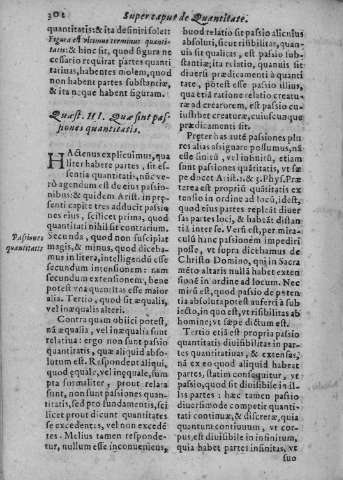 302
Super caput de Quantitate.
quantitatis: & ita desini solet:
Figura est vltimus terminus quanti-
tatis: & hinc sit, quod figura ne
cessario requirat partes quanti
tatinas, habentes molem, quod
non habent partes substantiæ,
& ita neque habent figuram.
Quæst. III. Quæ sint pas
siones quantitatis.
HActenus explicuimus, qua
liter habere partes, sit es-
sentia quantitatis, nũc ve-
rò agendum est de eius passio-
nibus: & quidem Arist. in præ-
senti capite tres adducit passio
nes eius, scilicet prima, quod
quantitati nihil sit contrarium.
Passiones
quantitatis
Secunda, quod non suscipiat
magis, & minus, quod diceba-
mus in litera, intelligendũ esse
secundum intensionem: nam
secundum extensionem, bene
potest vna quantitas esse maior
alia. Tertio, quod sit æqualis,
vel inæqualis alteri.
Contra quam obijci potest,
nã æqualia, vel inæqualia sunt
relatiua: ergo non sunt passio
quantitatis, quæ aliquid absolu
tum est. Respondent aliqui,
quod equale, vel ineqequale, sum
pta formaliter, prout relata
sunt, non sunt passiones quan-
titatis, sed pro fundamentis, sci
licet prout dicunt quantitates
se excedentes, vel non exceden
tes. Melius tamen responde-
tur, nullum esse inconueniens,
quod relatio sit passio alicuius
absoluti, sicut risibilitas, quan-
uis sit qualitas, est passio sub-
stantiæ, ita relatio, quanuis sit
diuersi prædicamenti à quan-
titate, potest esse passio illius,
qua etiã ratione relatio creatu-
ræ ad creatorem, est passio cu-
iuslibet creaturæ, cuiuscunque
prædicamenti sit.
Præter has autẽ passiones plu
res alias assignare possumus, nã
esse finitũ, vel infinitũ, etiam
sunt passiones quãtitatis, vt sæ
pe docet Arist. 1. & 3. Phys. Præ
terea est propriũ quãtitatis ex
tensio in ordine ad locũ, idest,
quod eius partes repleãt diuer
sas partes loci, & habeãt distan
tiã inter se. Verũ est, per mira-
culũ hanc passionem impediri
posse, vt supra dicebamus de
Christo Domino, qui in Sacra
mẽto altaris nullã habet exten
sionẽ in ordine ad locum. Nec
mirũ est, quod passio de poten-
tia absoluta potest auferri à sub
iecto, in quo est, vt risibilitas ab
homine, vt sæpe dictum est.
Tertio est propria passio
quantitatis diuisibilitas in par-
tes quantitatiuas, & extensas,
nã ex eo quod aliquid habet
partes, statim consequitur, vt
passio, quod sit diuisibile in il-
las partes: hæc tamen passio
diuersimodè competit quanti-
tati continuæ, & discretæ, quia
quantum continuum, vt cor-
pus, est diuisibile in infinitum,
quia habet partes infinitas, vt
suo